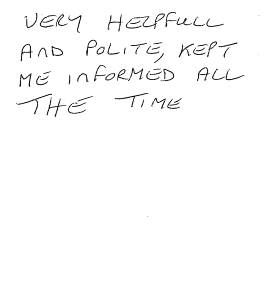 VERY HELPFULL
AND POLITE, KEPT
ME INFORMED ALL
THE TIME